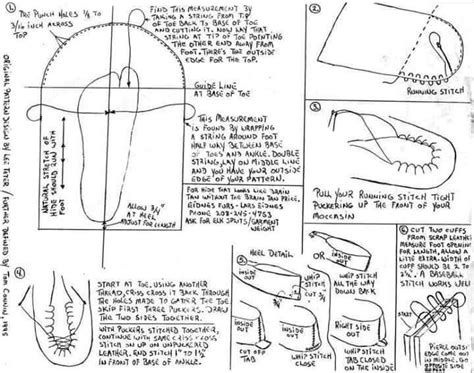 1.
Pre Punch Holes 1/8 to
3/16 inch across
top
Find this measurement by
taking a string from tip
of toe back to base of toe
and cutting it. Now lay that
string at tip of toe pointing
the other end away from
foot. There's the outside
edge for the top.
Guide line
at base of toe
This measurement
is found by wrapping
a string around foot
half way between base
of toes and ankle. Double
string, lay on middle line
and you have your outside
edge of your pattern.
Natural stretch of
hide should run with
foot
Allow 3/4"
at heel
adjust for length
For hide that looks like brain
tan without the brain tan price.
Eidnes Furs - Lars Eidnes
Phone 208-245-4753
Ask for elk splits/garment
weight
Original pattern design by
/ further defined by Tom
1985
2.
Running stitch
3.
Pull your running stitch tight
puckering up the front of your
moccasin
4.
Start at toe. Using another
thread, criss cross it back through
the holes made to gather toe. Toe
skip first three puckers. Draw
the two sides together.
With puckers stitched together,
continue with same criss cross
stitch on up on unpuckered
leather. End stitch 1" to 1 1/2
in front of base of ankle.
5.
Heel Detail
or
inside
out
whip
stitch
cut 3/4
inside
out
whip stitch
all the way
down back
inside
out
cut off
tab
inside
out
whip stitch
close
Right side
out
whip stitch
tab closed
on the inside
6.
Cut two cuffs
from scrap leather
measure foot opening
for length, allow a
lite extra. Width of
cuff should be
. A baseball
stitch works well
Pierce outside
edge come out
in middle. Go
opposite side